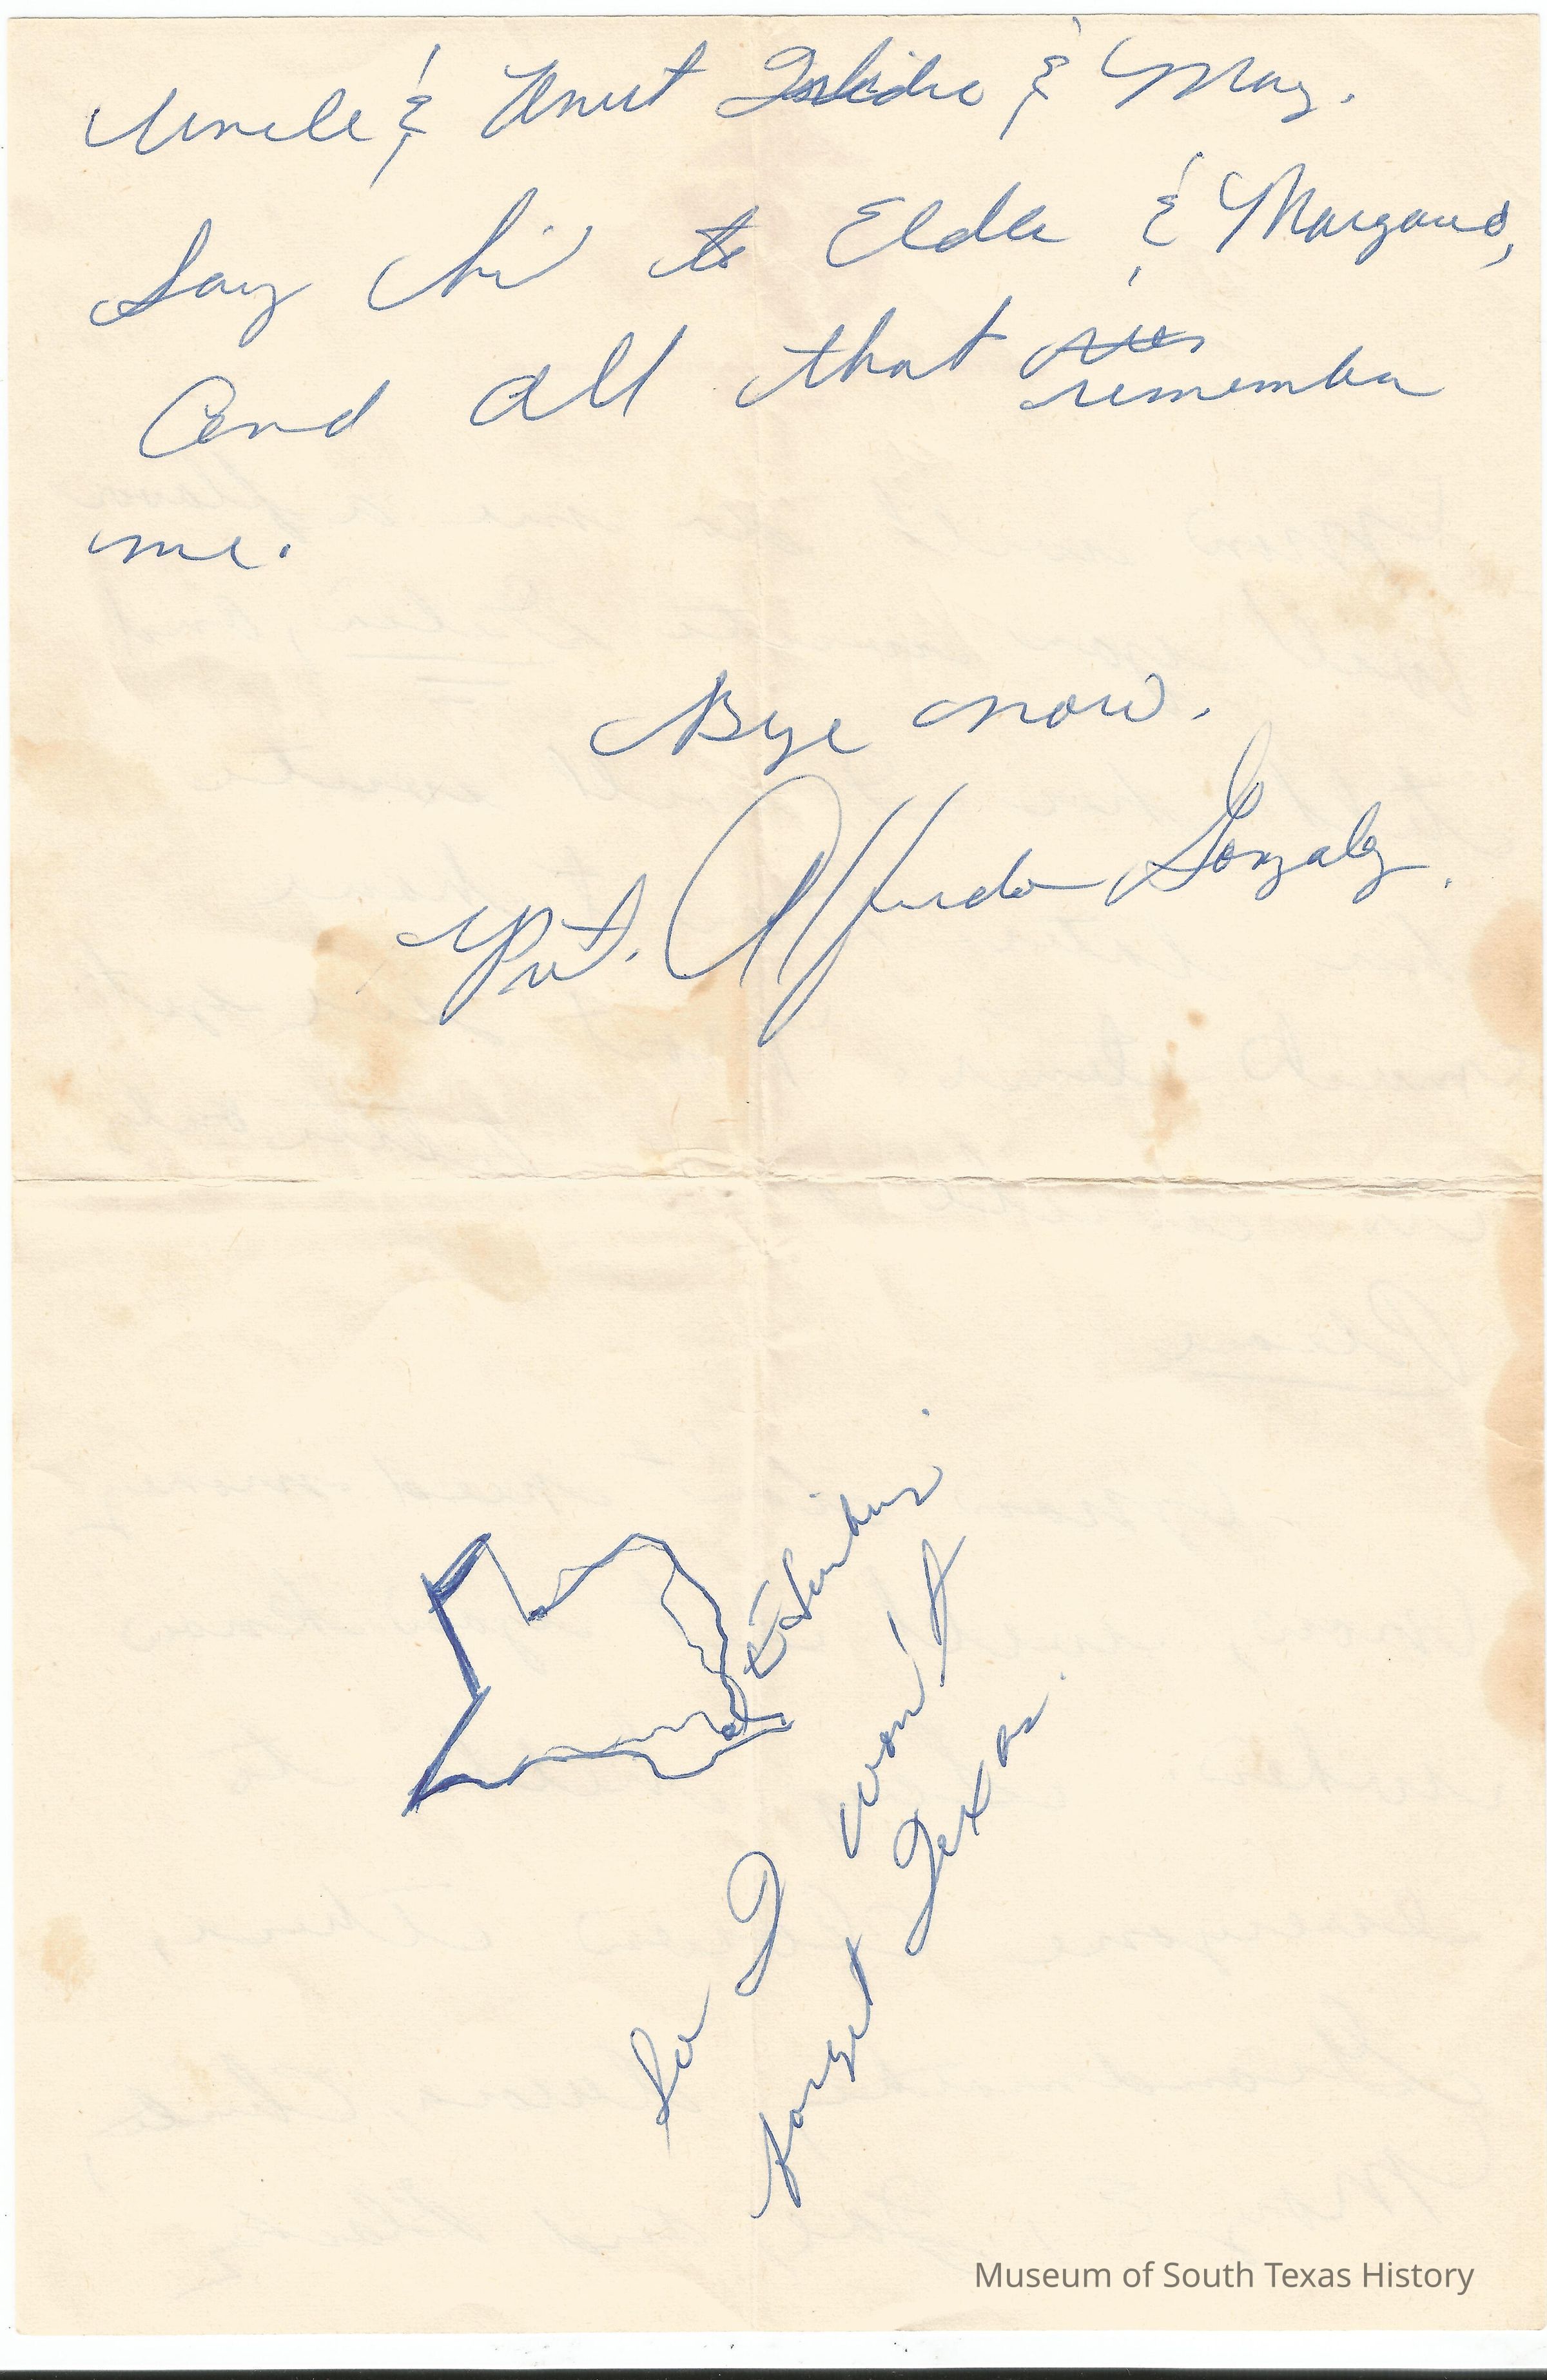 Uncle & Aunt Isidro & May.
Say hi to Elda & Margaro,
And all that
remember
me.
Bye now.
Pvt. Alfredo Gonzalez.
Edinburg.
So I won't
forget Texas.
Museum of South Texas History